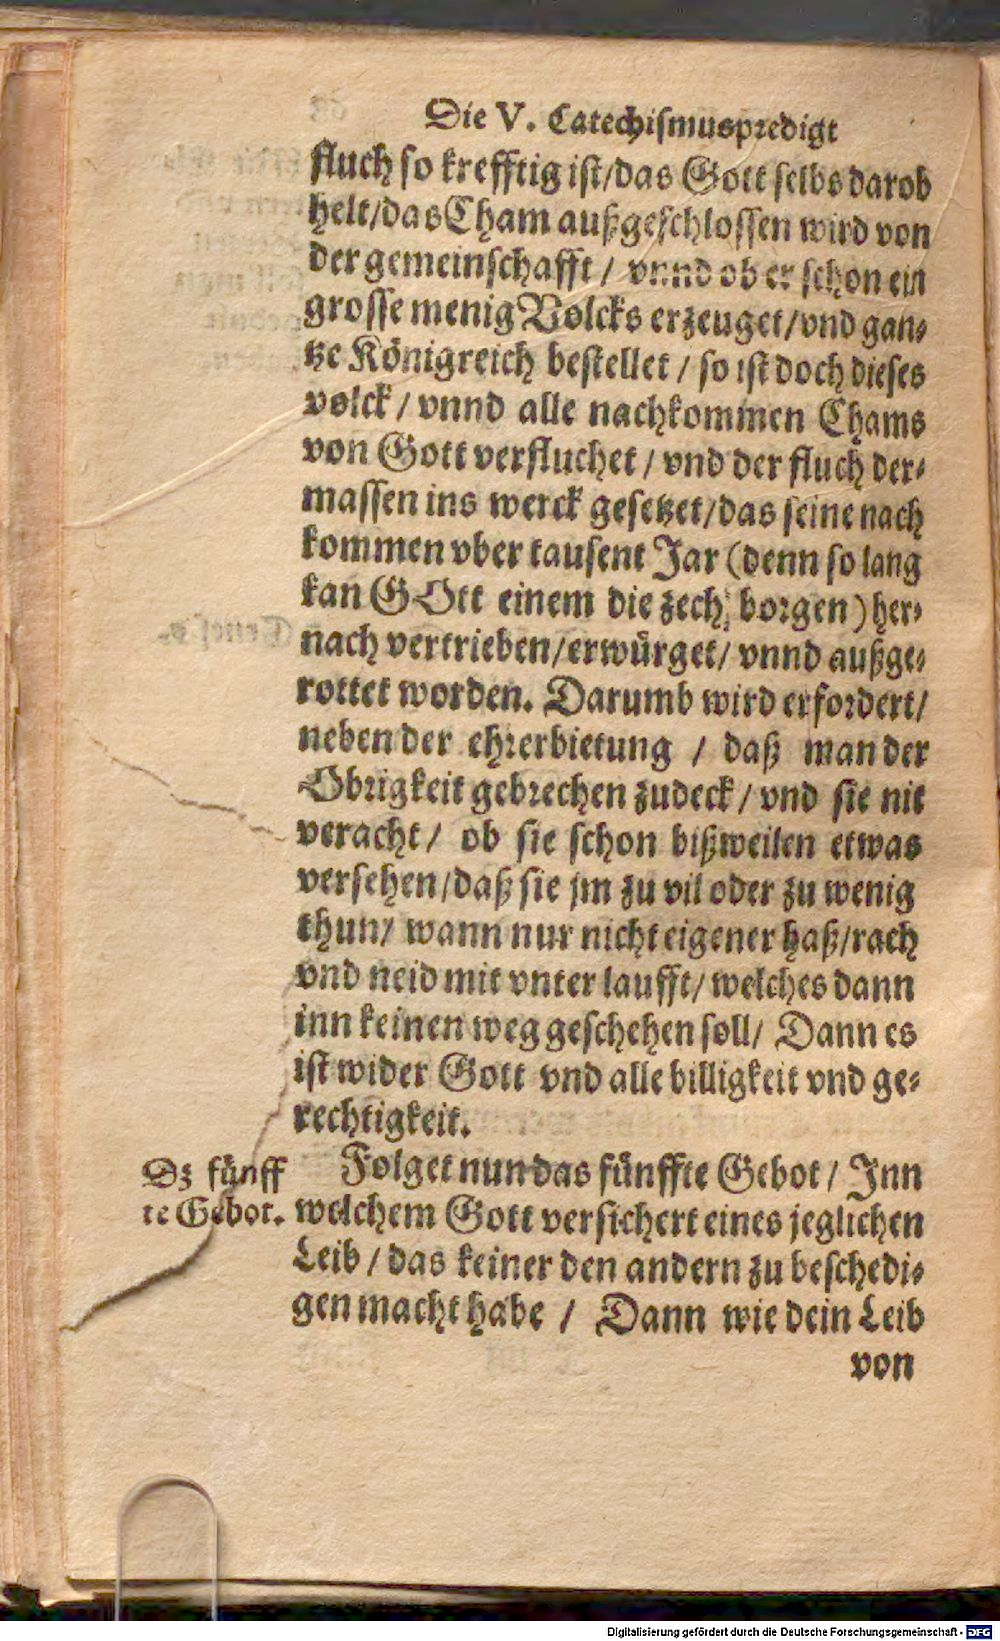 Die V. Catechismuspredigt
fluch so krefftig ist/das Gott selbs darob
helt/das Cham außgeschlossen wird von
der gemeinschafft / vnnd ob er schon ein
grosse menig Volcks erzeuget/vnd gan-
tze Königreich bestellet / so ist doch dieses
volck / vnnd alle nachkommen Chams
von Gott verfluchet / vnd der fluch der-
massen ins werck gesetzet/das seine nach
kommen vber tausent Jar (denn so lang
kan GOtt einem die zech borgen) her-
nach vertrieben/erwürget/ vnnd außge-
rottet worden. Darumb wird erfordert/
neben der ehrerbietung / daß man der
Obrigkeit gebrechen zudeck/ vnd sie nit
veracht/ ob sie schon bißweilen etwas
versehen/daß sie jm zu vil oder zu wenig
thun/ wann nur nicht eigener haß/rach
vnd neid mit vnter laufft/ welches dann
inn keinen weg geschehen soll/ Dann es
ist wider Gott vnd alle billigkeit vnd ge-
rechtigkeit.
Dz fünff
te Gebot.
Folget nun das fünffte Gebot / Inn
welchem Gott versichert eines jeglichen
Leib / das keiner den andern zu beschedi-
gen macht habe / Dann wie dein Leib
von
Digitalisierung gefördert durch die Deutsche Forschungsgemeinschaft - DFG